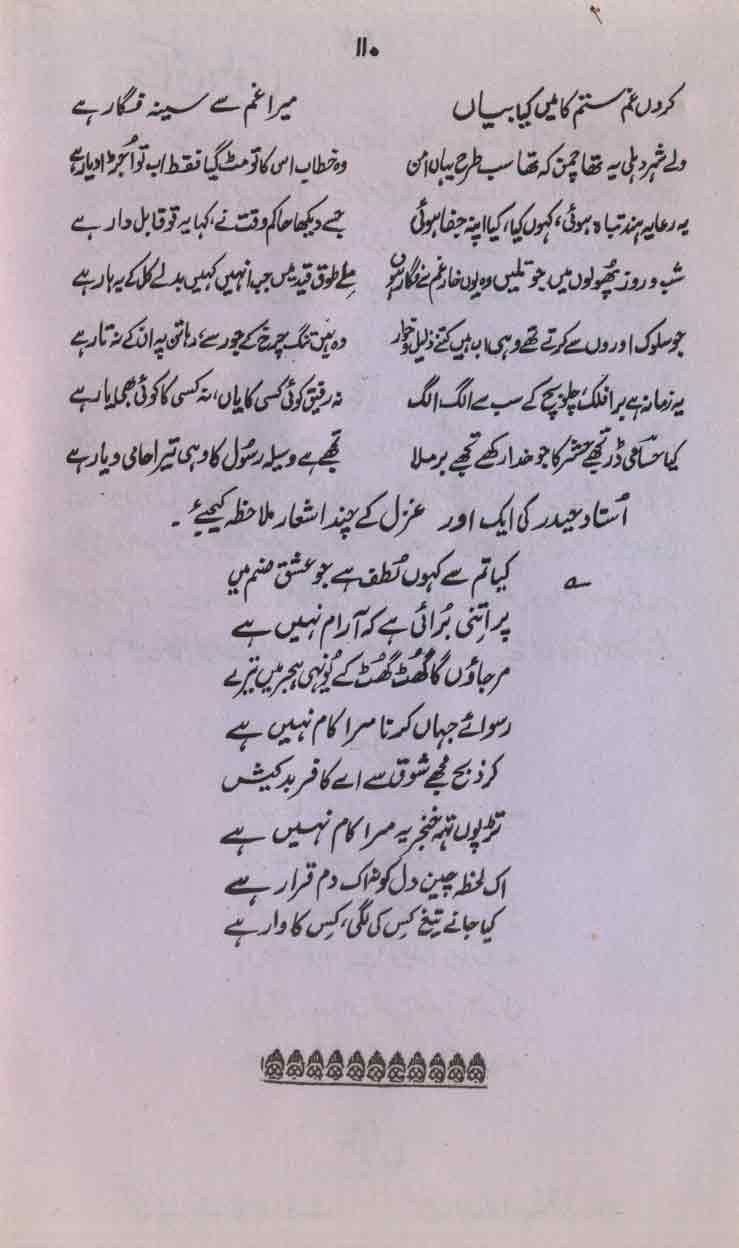 ۱۱۰
کروں غم ستم کا میں کیا بیاں میرا غم سے سینہ فگار ہے
ولے شہر دہلی یہ تھا چمن کہ تھا سب طرح یہاں امن وہ خطاب اس کا تو مٹ گیا فقط اب تو اُجڑا دیار ہے
یہ رعایہ ہند تباہ ہوئی، کہوں کیا، کیا اپنہ جفا ہوئی جسے دیکھا حاکم وقت نے، کہا یہ تو قابل دار ہے
شب و روز پھولوں میں جو تلیں وہ یوں خار غم سے فگار ہوں ملے طوق قید میں جب انہیں کہیں بدلے گل کے یہ ہار ہے
جو سلوک اوروں سے کرتے تھے وہی اب ہیں کتنے ذلیل و خوار وہ ہیں تنگ چرخ کے جور سے، رہا تن پہ ان کے نہ تار ہے
یہ زمانہ ہے برا فلک، چلو بچ کے سب سے الگ الگ نہ رفیق کوئی کسی کا یاں، نہ کسی کا کوئی بھی یار ہے
کیا حسامی ڈر تجھے حشر کا جو خدا رکھے تجھے برملا تجھے ہے وسیلہ رسُول کا وہی تیرا حامی و یار ہے
اُستاد حیدر کی ایک اور غزل کے چند اشعار ملاحظہ کیجیئے ۔
کیا تم سے کہوں لُطف ہے جو عشق صنم میں
پر اِتنی بُرائی ہے کہ آرام نہیں ہے
مر جاؤں گا گھُٹ گھُٹ کے یُونہی ہجر میں تیرے
رسوائے جہاں کرنا مرا کام نہیں ہے
کر ذبح مجھے شوق سے اے کافر بدکیش
تڑپوں تہہ خنجر یہ مرا کام نہیں ہے
اک لحظہ چین دل کو نہ اک دم قرار ہے
کیا جانے تیغ کِس کی لگی، کِس کا وار ہے